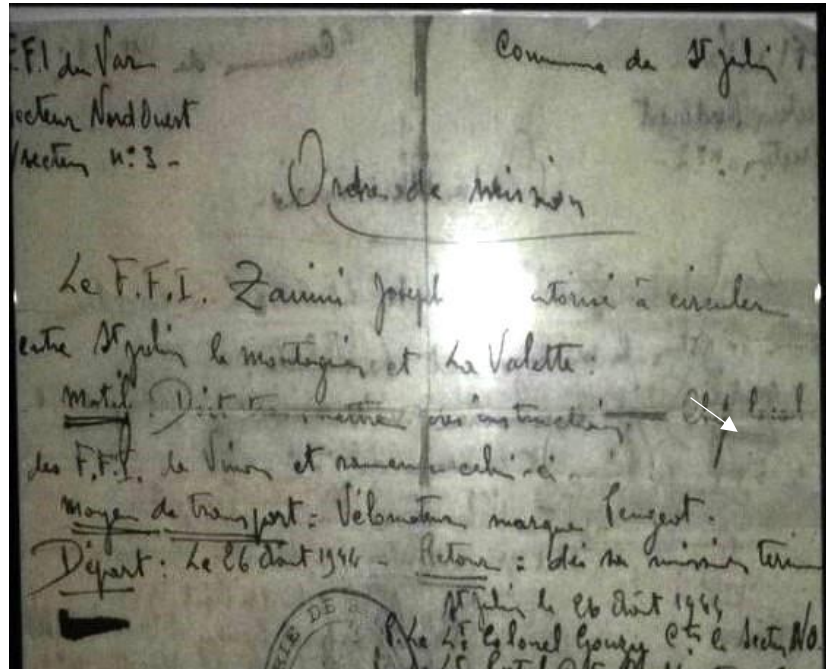 F.F.I du Var
Commune de St Julien
Secteur Nord Ouest
secteur n° 3 -
Ordre de mission
Le F.F.I. Zanini Joseph autorisé à circuler
entre St Julien le montagnier et La Valette.
Motif : Doit transmettre instructions Chef local
des F.F.I. de Vinon et ramener celui-ci.
moyen de transport = Vélomoteur marque Peugeot.
Départ : Le 26 Août 1944 - Retour = dès sa mission term
St Julien le 26 Août 1944
P. Le Lt Colonel Gouzy Ct le Secteur NO
RIE DE